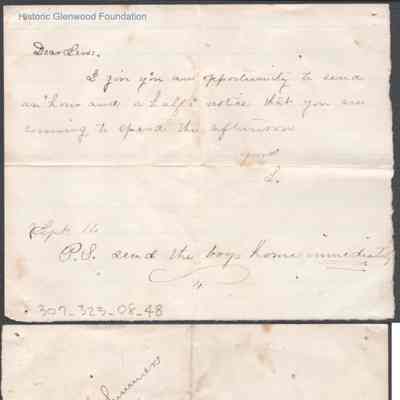 Historic Glenwood Foundation
Dear Lewis.
I give you an opportunity to send
an hour and a half's notice that you are
coming to spend the afternoon
yours
L.
Sept. 16
P.S. send the boys home immediately
307_323_08_48